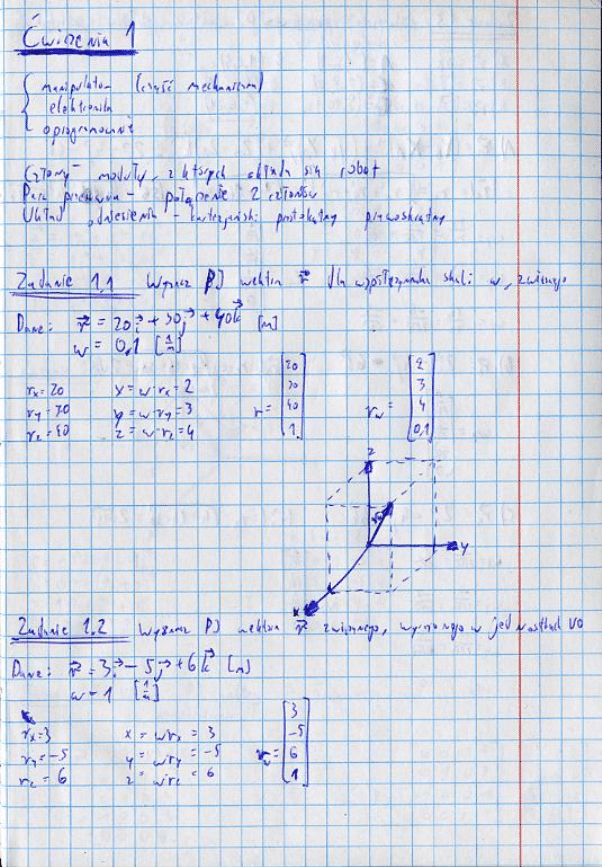 Ćwiczenia 1
manipulator (część mechaniczna)
elektronika
oprogramowanie
Człony - moduły, z których składa się robot
Para - połączenie 2 członów
Układ odniesienia - kartezjański prostokątny prawoskrętny
Zadanie 1.1 Wyznacz PJ wektora r⃗ dla współczynnika skali w, związanego
Dane: r⃗ = 20i⃗ + 30j⃗ + 40k⃗ [m]
w = 0,1 [1/m]
rx = 20 x = w·rx = 2
ry = 30 y = w·ry = 3
rz = 40 z = w·rz = 4
r = [20 30 40 1]
rw = [2 3 4 0,1]
z
y
x
Zadanie 1.2 Wyznacz PJ wektora r⃗ w jednostkach UO
Dane: r⃗ = 3i⃗ - 5j⃗ + 6k⃗ [m]
w = 1 [1/m]
rx = 3 x = wrx = 3
ry = -5 y = wry = -5
rz = 6 z = wrz = 6
rw = [3 -5 6 1]